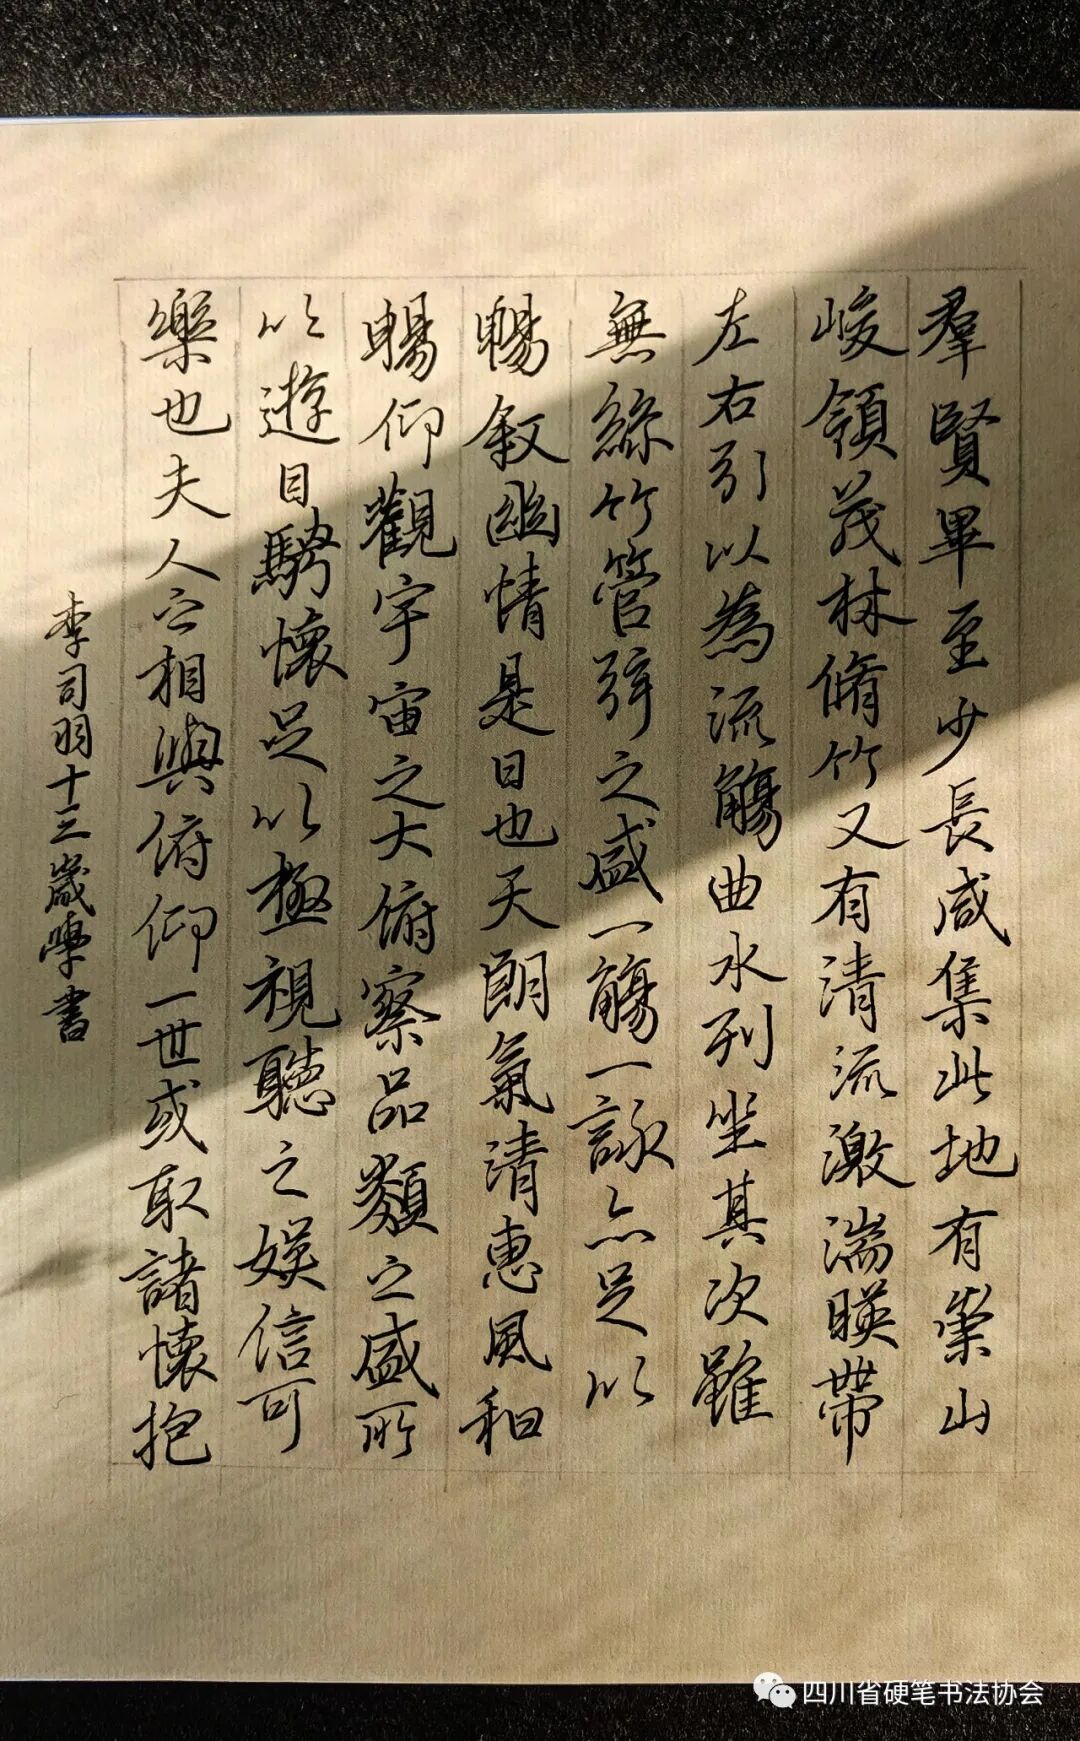 羣賢畢至少長咸集此地有崇山
峻領茂林脩竹又有清流激湍暎帶
左右引以為流觴曲水列坐其次雖
無絲竹管弦之盛一觴一詠亦足以
暢叙幽情是日也天朗氣清惠風和
暢仰觀宇宙之大俯察品類之盛所
以遊目騁懷足以極視聽之娛信可
樂也夫人之相與俯仰一世或取諸懷抱
李司羽十三歲學書
四川省硬笔书法协会